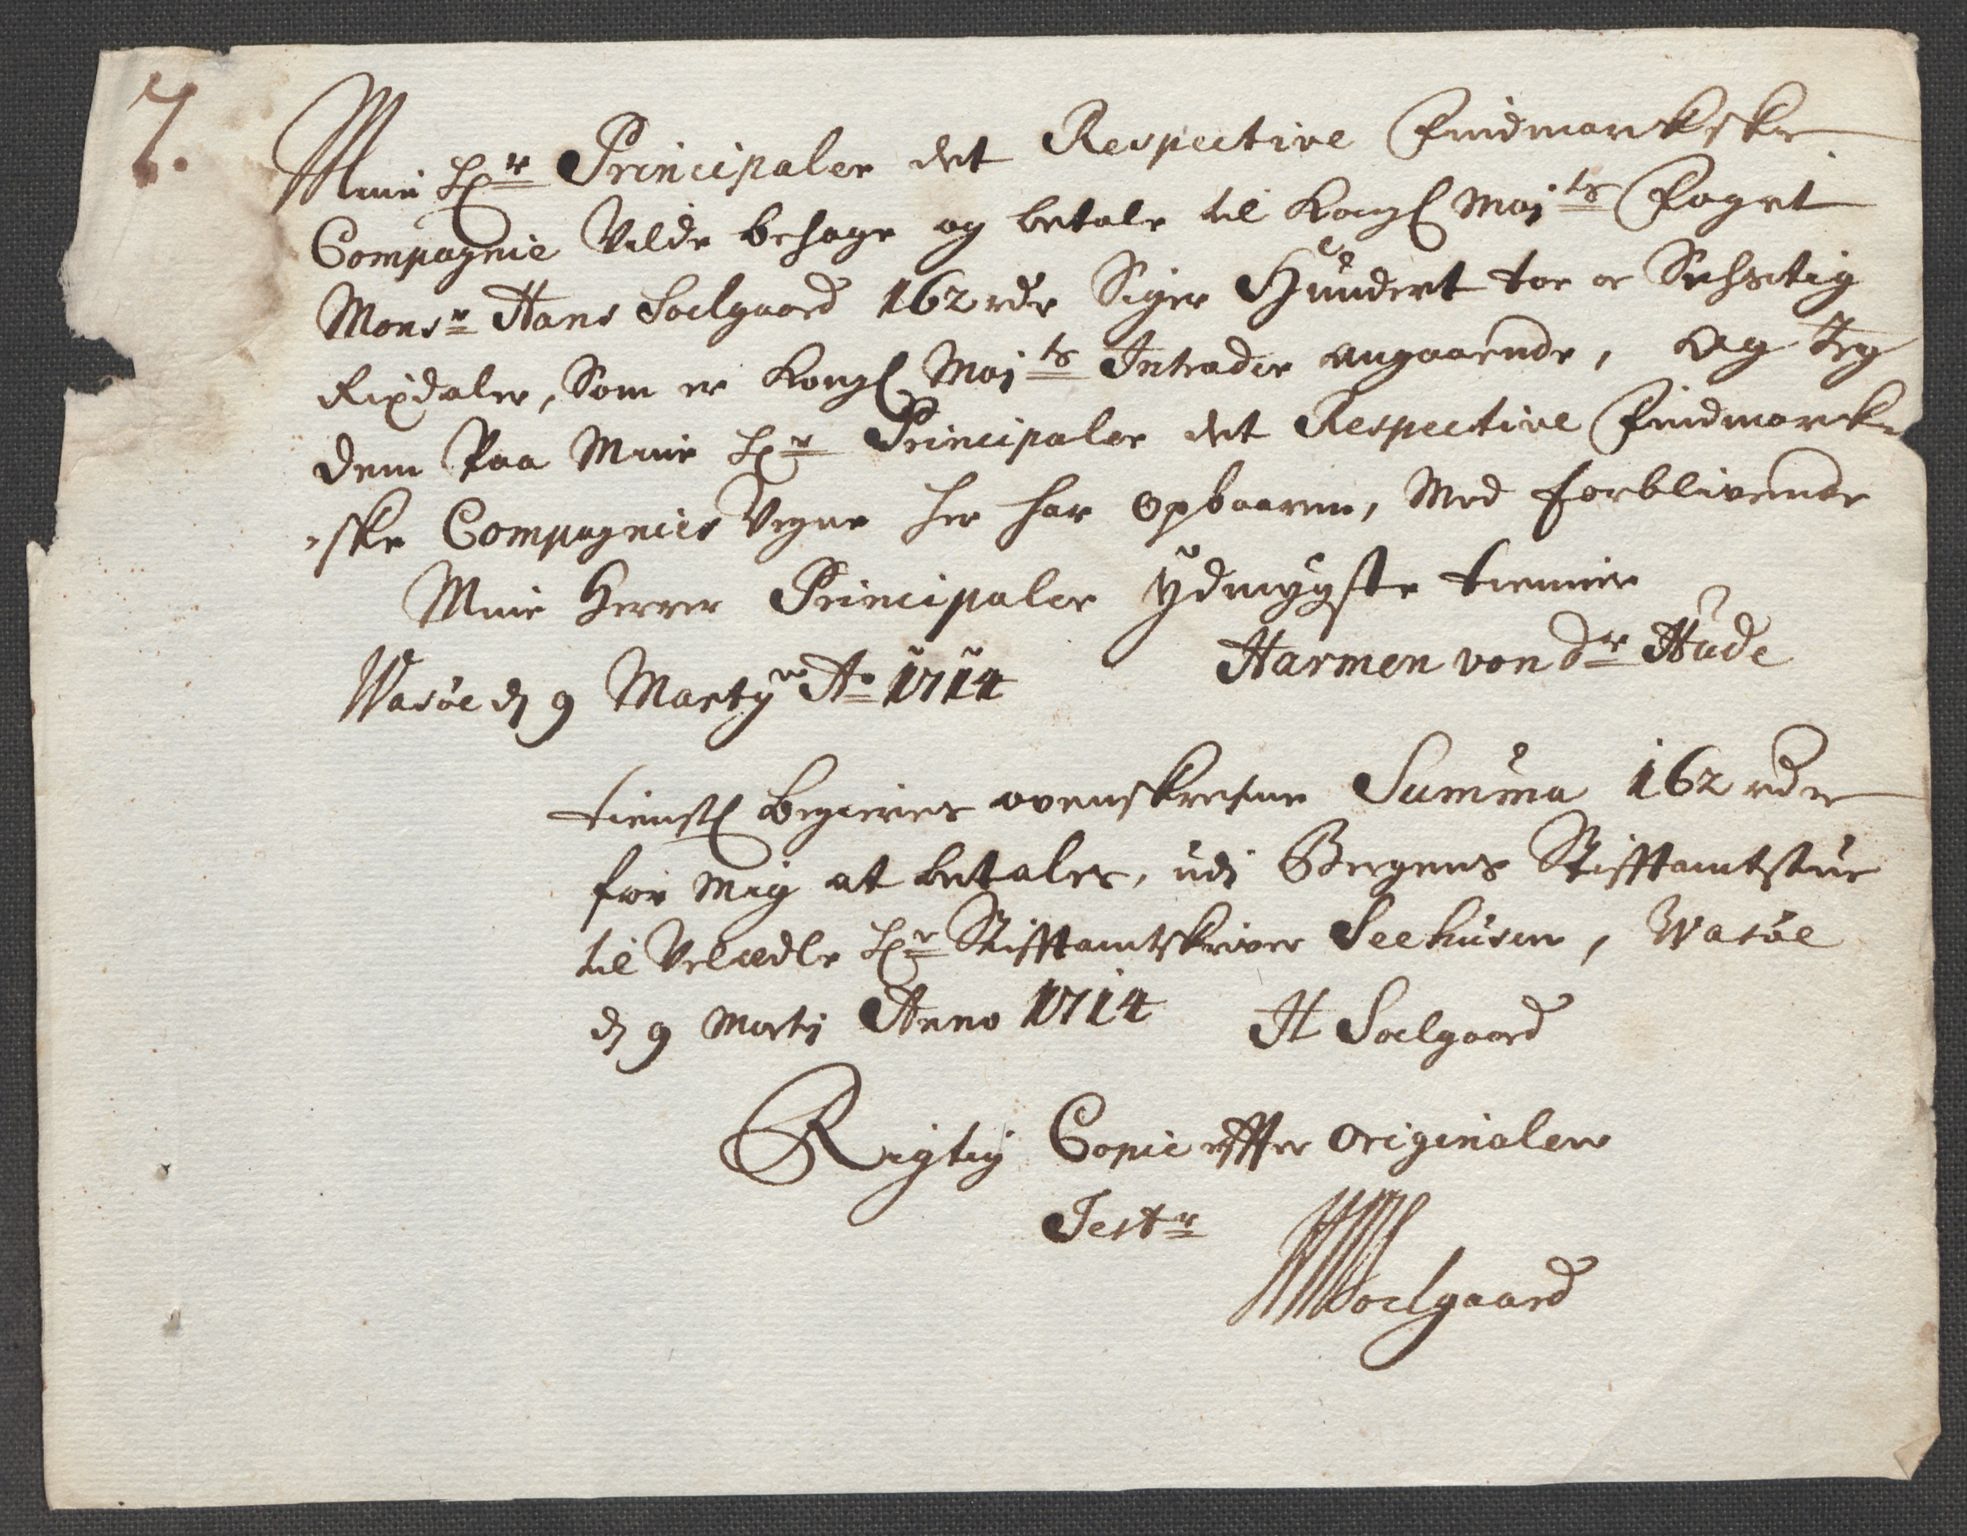 7.
Mine Hr Principaler det Respective Findmarckske
Compagnie Vilde behage og betale til Kongl Maj ts Foget
Monsr Hans Soelgaard 162 rdr Siger Hundert toe oc Sechsstig
Rixdaler, Som er Kongl Maj ts Intrader angaaende, og Jeg
dem Paa Mine Hr Principaler det Respective Findmarck-
-ske Compagnies Vegne her har opbaaren, Med forblivende
Mine Herrer Principaler ydmygste tienner
Harmen von dr Hude
Wasöe d 9 Marty Ao 1714
tienstl Begieres ovenskrefne Summa 162 rdr
for mig at betales, udi Bergens Stifftamtstue
til Velædle Hr Stifftamtskriver Seehusen, Wasöe
d 9 Marty Anno 1714 H Soelgaard
Rigtig Copie effter originalen
Testr
HSoelgaard